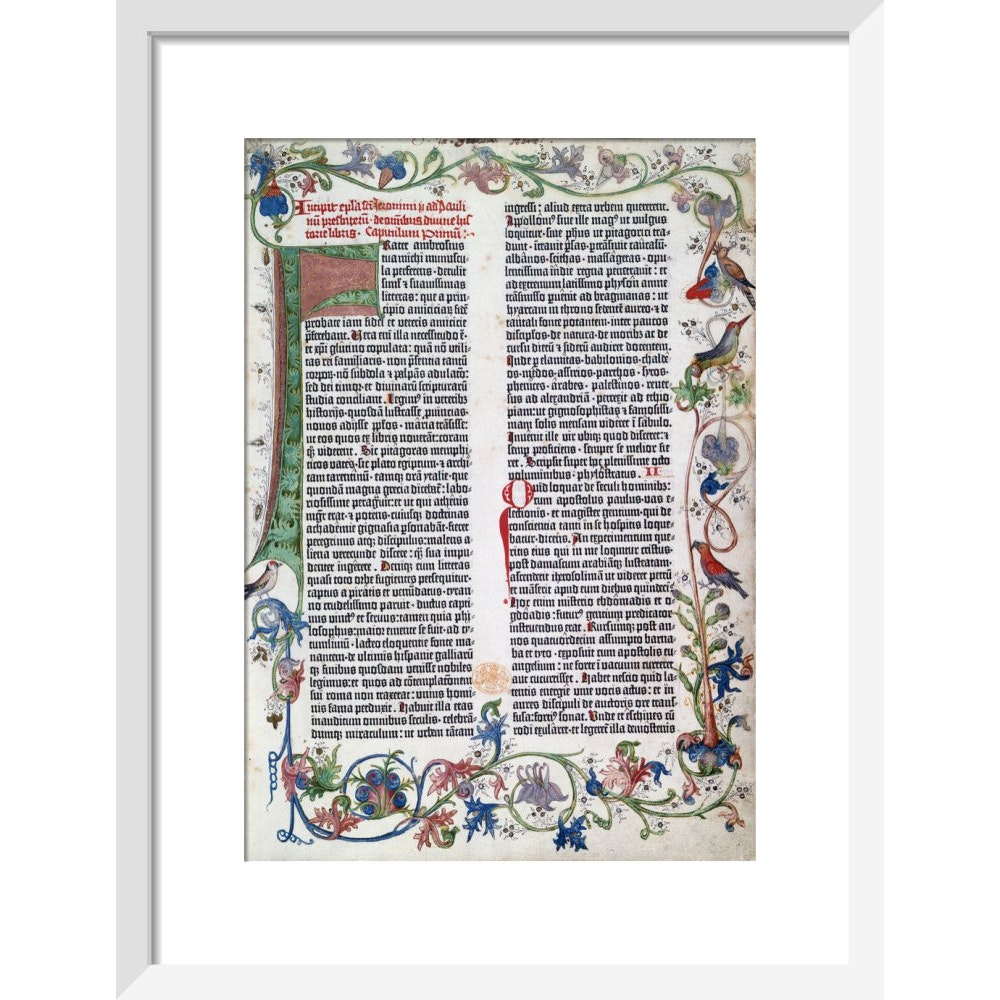 Incipit epła sct̄i Jeronimi p̄ ad Pauli
nū presbiterū · de omnibus divine his
torie libris · Capitulum Primū :
Frater ambrosius
tua michi munuscu
la perferens · detulit
simł et suavissimas
litteras : que a prin
cipio amiciciaꝝ fidē
probate iam fidei et veteris amicicie
p̄ferebant · Vera eni illa necessitudo ē ·
et xpi glutino copulata : quā nō utili
tas rei familiaris · non p̄sentia tantū
corpoꝝ · nō subdola et palpās adulatō :
sed dei timor · et divinarū scripturarū
studia conciliant · Legimꝰ in veteribꝫ
historijs · quosdā lustrasse p̄uincias ·
novos adijsse pp̄los · maria trāsisse :
ut eos quos ex libris noverāt : coram
qꝫ viderent · Sic pitagoras memphi
ticos vates · sic plato egiptum · et archi
tam tarentinū · eamqꝫ orā ytalie · que
quondā magna grecia dicebat̄ : labo
riosissime peragrat : et ut qui athenis
mgr̄ erat · et potens · cuiusqꝫ doctrinas
achademie gignasia p̄sonabāt · fieret
peregrinus atqꝫ discipulus : malens a
liena verecunde discere : qꝫ sua impu
denter ingerere · Deniqꝫ cum litteras
quasi toto orbe fugientes persequitur ·
captus a piratis et venūdatus · tyran
no crudelissimo paruit · ductus capti
vus vinctꝰ et servus : tamen quia phi
losophus : maior emente se fuit · ad ty
tumlivium · lacteo eloquentie fonte ma
nantem · de ultimis hispanie galliarū
qꝫ finibus quosdam venisse nobiles
legimus : et quos ad cōtemplacōnem
sui roma non traxerat : unius homi
nis fama perduxit · Habuit illa etas
inauditum omnibus seculis · celebrā
dumqꝫ miraculum : ut urbem tātam
ingressi : aliud extra urbem quererent ·
Apollonius sive ille magꝰ ut vulgus
loquitur · sive phus ut pitagorici tra
dunt · intravit p̄sas · pertrāsivit caucasū
albānos · scithas · massagetas · opu
lentissima indie regna penetravit : et
ad extremum latissimo physon amne
trāsmisso puenit ad bragmanas : ut
hyarcam in throno sedentē aureo · et de
tantali fonte potantem · inter paucos
discipłos · de natura · de moribꝫ ac de
cursu dierū et siderū audiret docentem ·
Inde p elamitas · babilonios · chalde
os · medos · assirios · parthos · syros ·
phenices · arabes · palestinos · rever
sus ad alexandriā · perrexit ad ethio
piam : ut gignosophistas et famosissi
mam solis mensam videret i sabulo ·
Invenit ille vir ubiqꝫ quod disceret : et
semp proficiens · semper se melior fie
ret · Scripsit super hoc plenissime octo
voluminibus · phylostratus · II
Quid loquar de seculi hominibꝫ :
cum apostolus paulus · vas e
lectionis · et magister gentium · qui de
conscientia tanti in se hospitis loque
batur · dicens · An experimentum que
ritis eius qui in me loquitur cristus ·
post damascum arabiāqꝫ lustratam ·
ascenderit iherosolimā ut videret petrū
et māserit apud eum diebus quindecī ·
Hoc enim misterio ebdomadis et o
gdoadis : futurꝰ gentium predicator
instruendus erat · Rursumqꝫ post an
nos quatuordecim assumpto barna
ba et tyto · exposuit cum apostolis eu
angelium : ne forte i vacuum curreret
aut cucurrisset · Habet nescio quid la
tentis energie vive vocis actus : et in
aures discipuli de auctoris ore trans
fusa : fortiꝰ sonat · Unde et eschines cū
rodi exularet · et legeret̄ illa demostenis